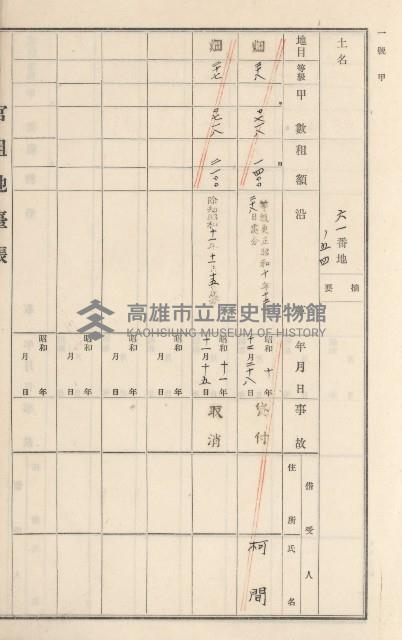 一號甲
土名
六一番地
ノ五四
摘要
地目
等級
甲數
租額
沿
年月日
事故
借受人
住所
氏名
畑
〇七一八
一四〇〇
等級更正昭和十年十二月
二十八日
昭和十年
十二月二十八日
柯間
畑
〇七一八
二一〇〇
昭和十一年
十一月十五日
取消
昭和年
月日
昭和年
月日
昭和年
月日
昭和年
月日
官租地臺帳
高雄市立歷史博物館
KAOHSIUNG MUSEUM OF HISTORY